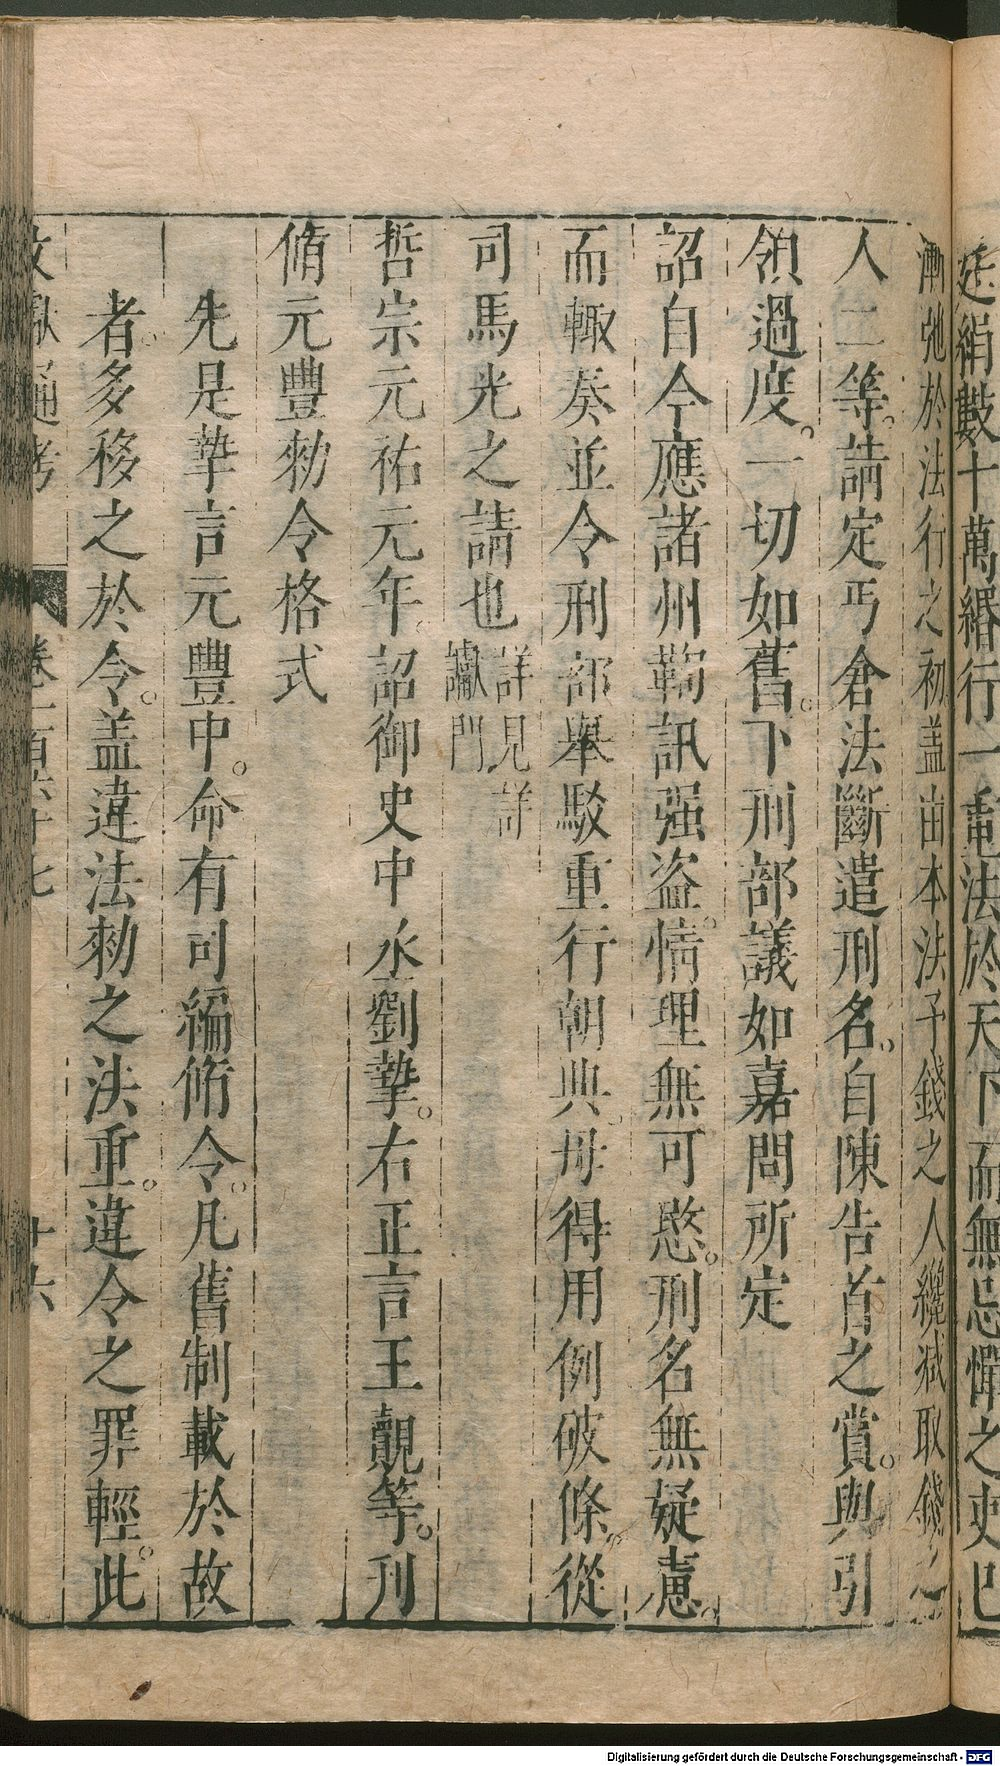 廷絹數十萬緡行一重法於天下而無忌憚之吏已
漸弛於法行之初盖由本法予錢之人纔减取錢之
人二等請定丐倉法斷遣刑名自陳告首之賞與引
領過度一切如舊下刑部議如嘉問所定
詔自今應諸州鞫訊强盗情理無可愍刑名無疑慮
而輙奏並令刑部舉駁重行朝典毋得用例破條從
司馬光之請也詳見詳讞門
哲宗元祐元年詔御史中丞劉摯右正言王覿等刊
脩元豐勑令格式
先是摯言元豐中命有司編脩令凡舊制載於故
者多移之於令盖違法勑之法重違令之罪輕此
文獻通考 卷一百六十七 十六
Digitalisierung gefördert durch die Deutsche Forschungsgemeinschaft - DFG